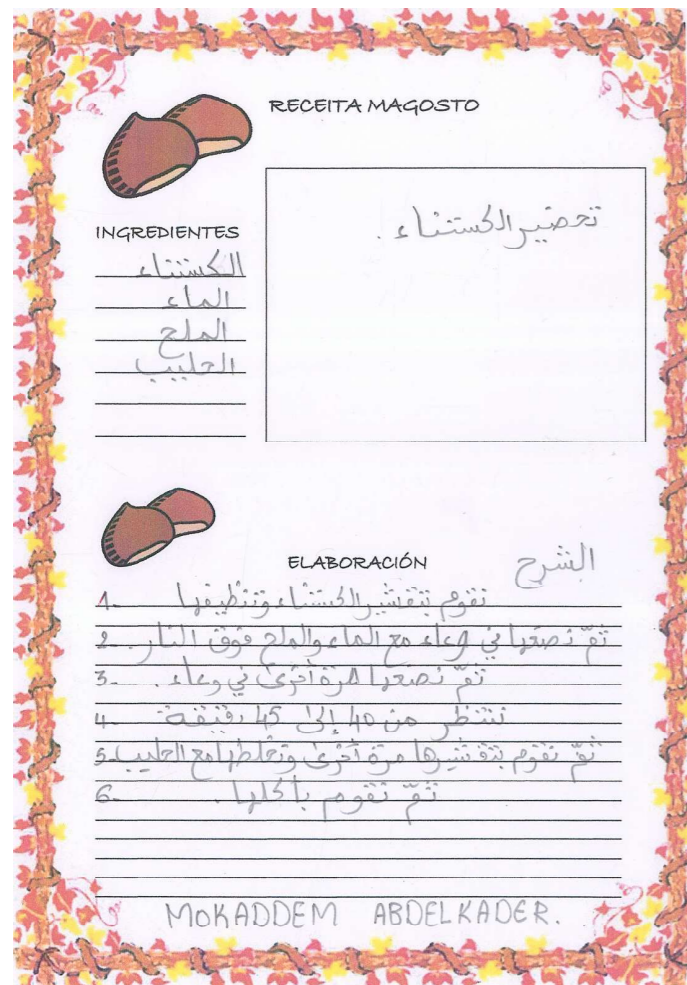 RECEITA MAGOSTO
تحضير الكستناء.
INGREDIENTES
الكستناء
الماء
الملح
الحليب
ELABORACIÓN
الشرح
1- نقوم بتقشير الكستناء وتنظيفها
2- ثمّ نضعها في وعاء مع الماء والملح فوق النار.
3- ثمّ نضعها مرة أخرى في وعاء.
4- ننتظر من 40 إلى 45 دقيقة
5- ثمّ نقوم بتقشيرها مرة أخرى ونخلطها مع الحليب
6- ثمّ نقوم بأكلها.
MOKADDEM ABDELKADER.